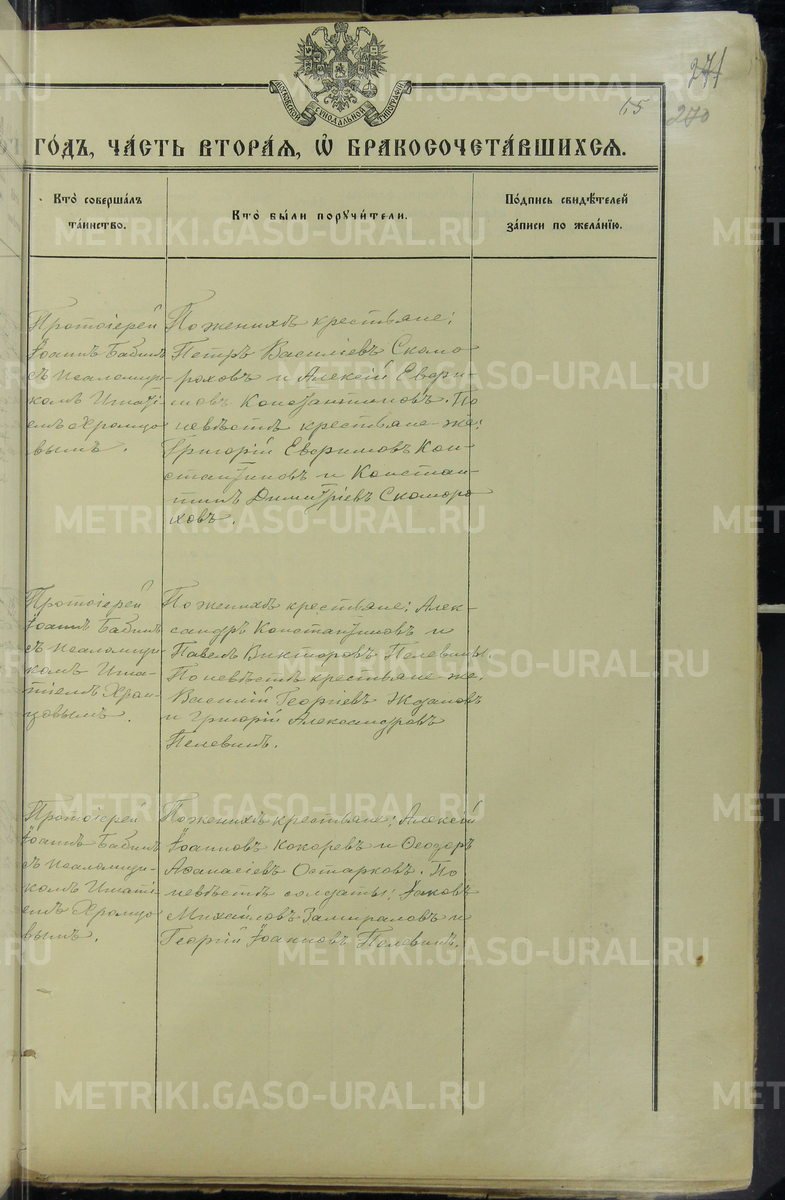 271
65 270
МОСКОВСКОЙ СѴНОДАЛЬНОЙ ТИПОГРАФІИ
ГОДЪ, ЧАСТЬ ВТОРАЯ, Ѡ БРАКОСОЧЕТАВШИХСЯ.
Кто совершалъ
таинство.
Кто были поручители.
Подпись свидѣтелей
записи по желанію.
Протоіерей
Іоаннъ Бабинъ
съ псаломщи-
комъ Игнаті-
емъ Хромцо
вымъ.
По женихѣ крестьяне:
Петръ Василіевъ Скомо
роховъ и Алексій Еври-
мовъ Константиновъ. По
невѣстѣ крестьяне-же:
Григорій Евримовъ Кон-
стантиновъ и Констан-
тинъ Димитріевъ Скоморо
ховъ.
Протоіерей
Іоаннъ Бабинъ
съ псаломщи-
комъ Игна-
тіемъ Хром-
цовымъ.
По женихѣ крестьяне: Алек-
сандръ Константиновъ и
Павелъ Викторовъ Пелевины.
По невѣстѣ крестьяне-же:
Василій Георгіевъ Ждановъ
и Григорій Александровъ
Пелевинъ.
Протоіерей
Іоаннъ Бабинъ
съ псаломщи-
комъ Игнаті-
емъ Хромцо
вымъ.
По женихѣ крестьяне: Алексій
Іоанновъ Кокоревъ и Ѳеодоръ
Аѳанасіевъ Остарковъ. По
невѣстѣ солдаты: Іаковъ
Михайловъ Замираловъ и
Георгій Іоанновъ Пелевинъ.
METRIKI.GASO-URAL.RU